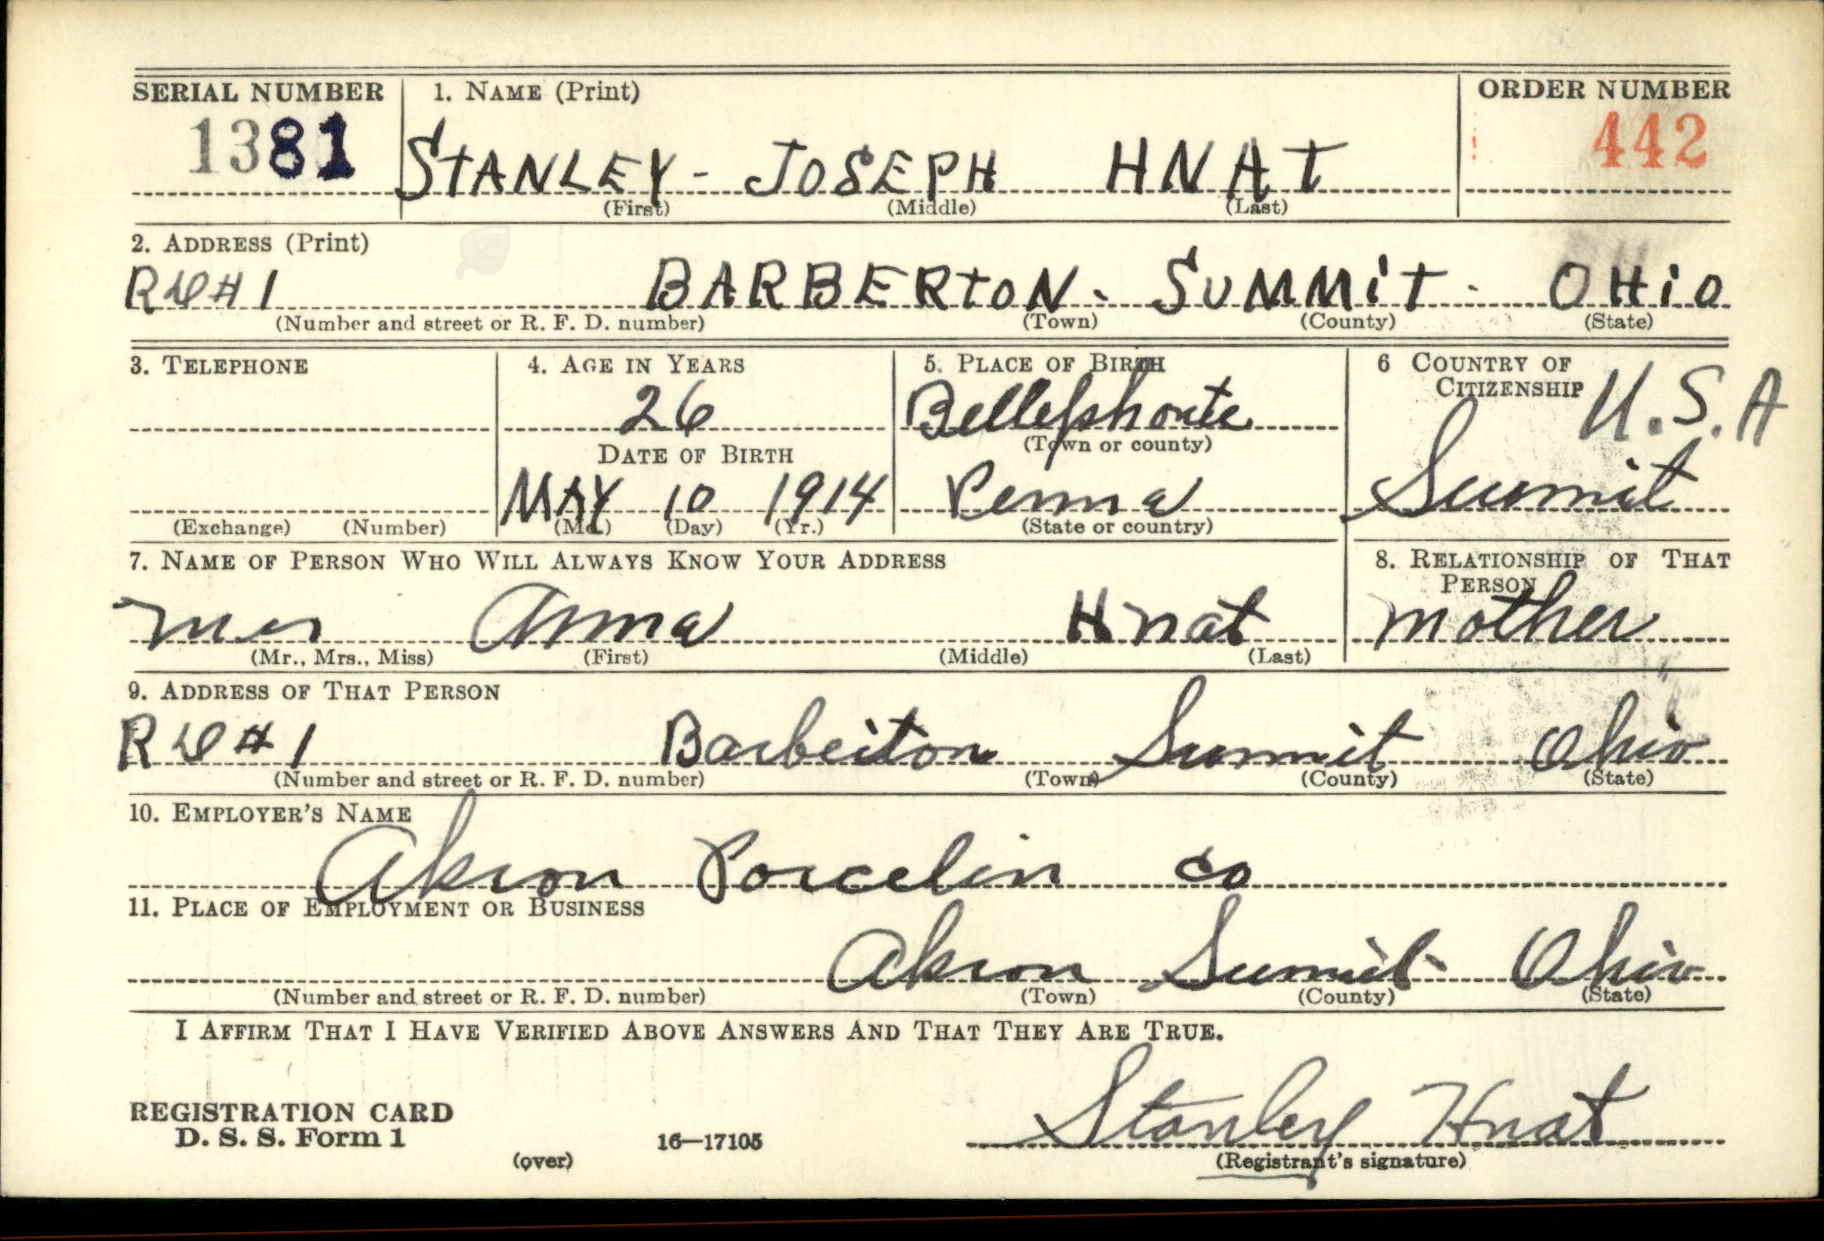 SERIAL NUMBER 1. NAME (Print) ORDER NUMBER
1381 STANLEY - JOSEPH HNAT 442
(First) (Middle) (Last)
2. ADDRESS (Print)
RD#1 BARBERTON - SUMMIT - OHIO
(Number and street or R. F. D. number) (Town) (County) (State)
3. TELEPHONE 4. AGE IN YEARS 5. PLACE OF BIRTH 6 COUNTRY OF CITIZENSHIP U.S.A
26 Bellefhonte
DATE OF BIRTH (Town or county)
MAY 10 1914 Penna Summit
(Exchange) (Number) (Mo.) (Day) (Yr.) (State or country)
7. NAME OF PERSON WHO WILL ALWAYS KNOW YOUR ADDRESS 8. RELATIONSHIP OF THAT PERSON
Mrs Anna Hnat mother
(Mr., Mrs., Miss) (First) (Middle) (Last)
9. ADDRESS OF THAT PERSON
RD#1 Barberton Summit Ohio
(Number and street or R. F. D. number) (Town) (County) (State)
10. EMPLOYER'S NAME
Akron Porcelin Co
11. PLACE OF EMPLOYMENT OR BUSINESS
Akron Summit Ohio
(Number and street or R. F. D. number) (Town) (County) (State)
I AFFIRM THAT I HAVE VERIFIED ABOVE ANSWERS AND THAT THEY ARE TRUE.
REGISTRATION CARD
D. S. S. Form 1 16—17105 Stanley Hnat
(over) (Registrant's signature)